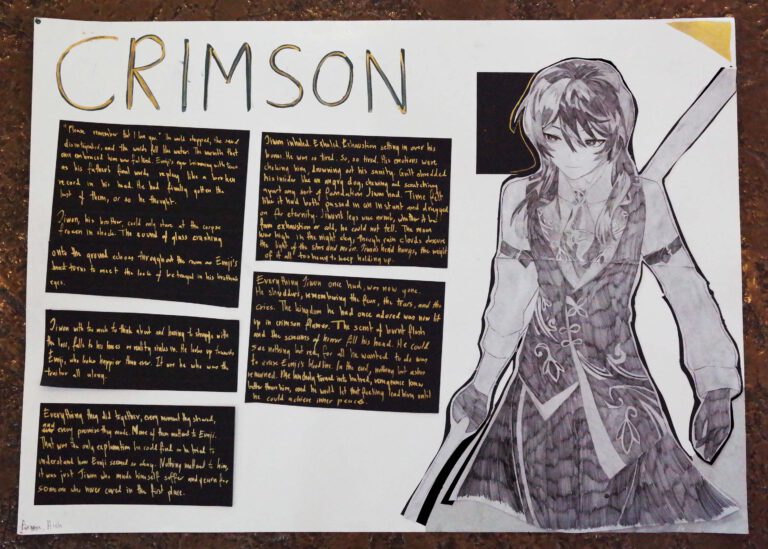 CRIMSON
"Please remember that I love you." The world stopped, the scene
disintegrates, and the words fell like water. The warmth that
once embraced him was
as his father's final words replay like a broken
record in his head. He had finally gotten the
last of them, or so he thought.
Jiwon, his brother could only stare at the corpse
frozen in shock. The sound of glass crashing
onto the ground echoes throughout the room as Eunji's
head turns to meet the look of betrayal in his brother's
eyes.
Jiwon with too much to think about and having to struggle with
the loss, falls to his knees as reality sinks in. He looks up towards
Eunji, who looks happier than ever. It was he who was the
traitor all along.
Everything they did together, every moment they shared,
and every promise they made. None of them mattered to Eunji.
That was the only explanation he could find as he tried to
understand how Eunji seemed so okay. Nothing mattered to him,
it was just Jiwon who made himself suffer and yearn for
someone who never cared in the first place.
Jiwon inhaled. Exhaled. Exhaustion setting in over his
bones. He was so tired. So, so tired. His emotions were
choking him, drowning out his sanity. Guilt shredded
his insides like an angry dog, chewing and scratching
apart any sort of foundation Jiwon had. Time felt
like it had both passed in an instant and dragged
on for eternity. Jiwon's legs was numb, whether it be
from exhaustion or cold, he could not tell. The moon
was high in the night sky, though rain clouds obscure
the light of the stars and moon. Jiwon's head hangs, the weight
of it all too heavy to keep holding up.
Everything Jiwon once had, was now gone.
He shuddered, remembering the fear, the tears, and the
cries. The kingdom he had once adored was now lit
up in crimson flames. The scent of burnt flesh
and the screams of terror fill his head. He could
see nothing but red, for all he wanted to do was
to erase Eunji's bloodline. In the end, nothing but ashes
remained. His
better than him, and he would let that feeling lead him until
he could achieve inner peace.